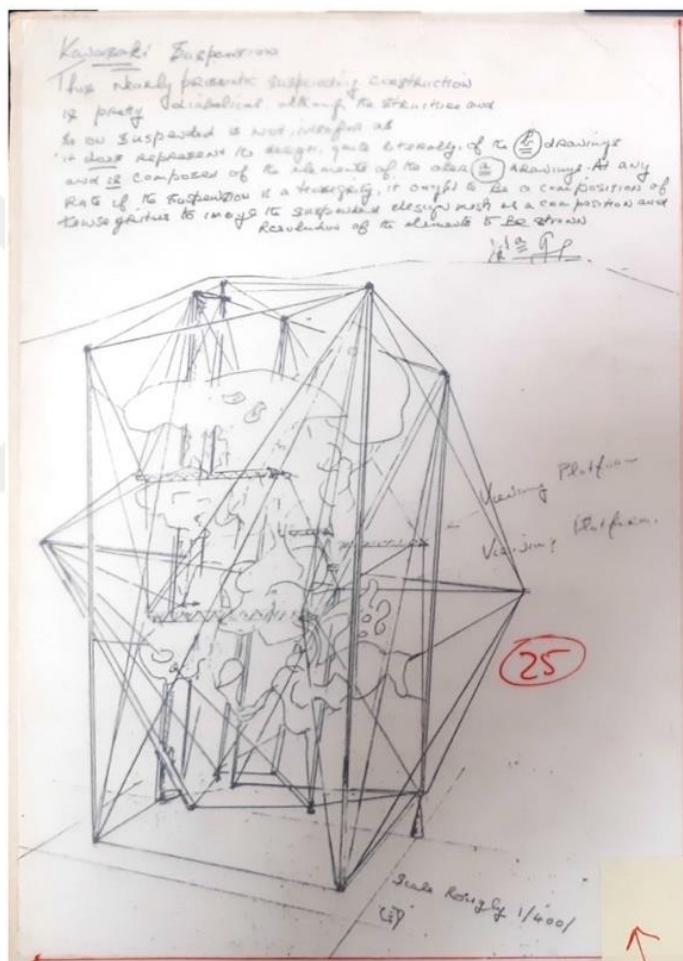 Kawasaki Suspension
This Nearly prismatic suspending construction
is pretty diabolical although the structure and
so on suspended is not, insofar as
it does represent the design, quite literally, of the (b) drawings
and is composed of the elements of the (a) drawings. At any
Rate if the suspension is a tensegrity, it ought to be a composition of
tensegrities to image the suspended design mesh as a composition and
Resolution of the elements to be shown
Viewing Platform
Viewing Platform.
25
Scale Roughly 1/400